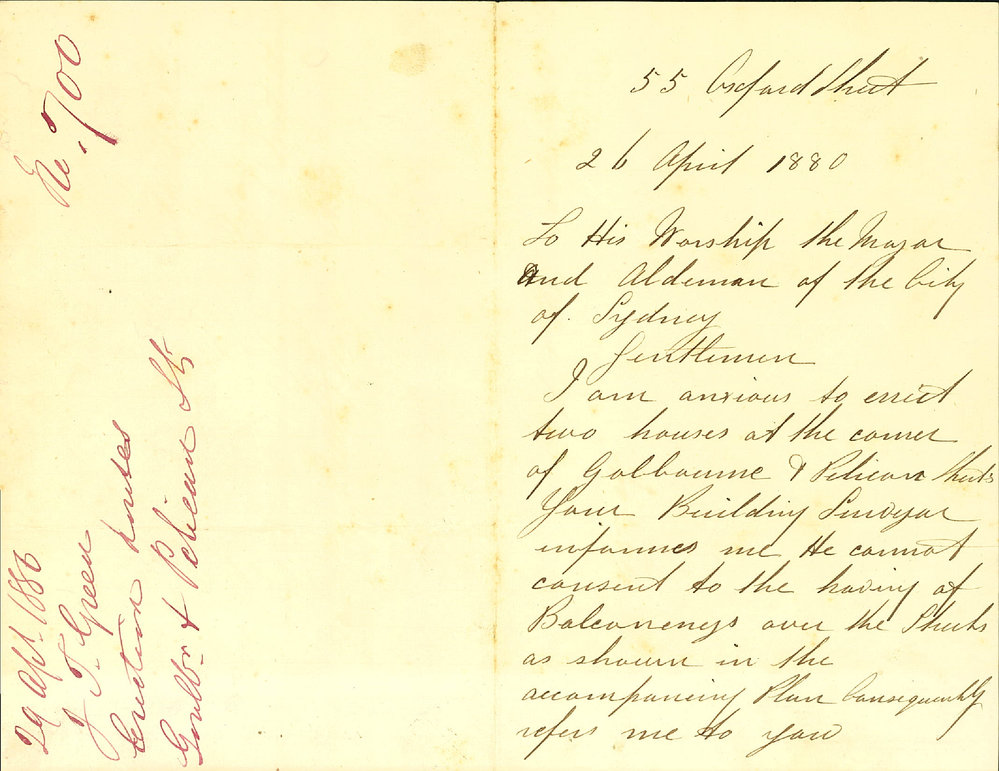 No. 700
29 Apl. 1880
J. T. Green
Erection houses
Goulbn & Pelican Sts
55 Oxford Street
26 April 1880
To His Worship the Mayor
And Aldeman of the City
of. Sydney
Gentlemen
I am anxious to errect
two houses at the corner
of Golbourne & Pelican Streets
Your Building Surveyor
informes me He cannot
consent to the having of
Balconeneys over the Streets
as shown in the
accompaning Plan Consequently
refers me to you